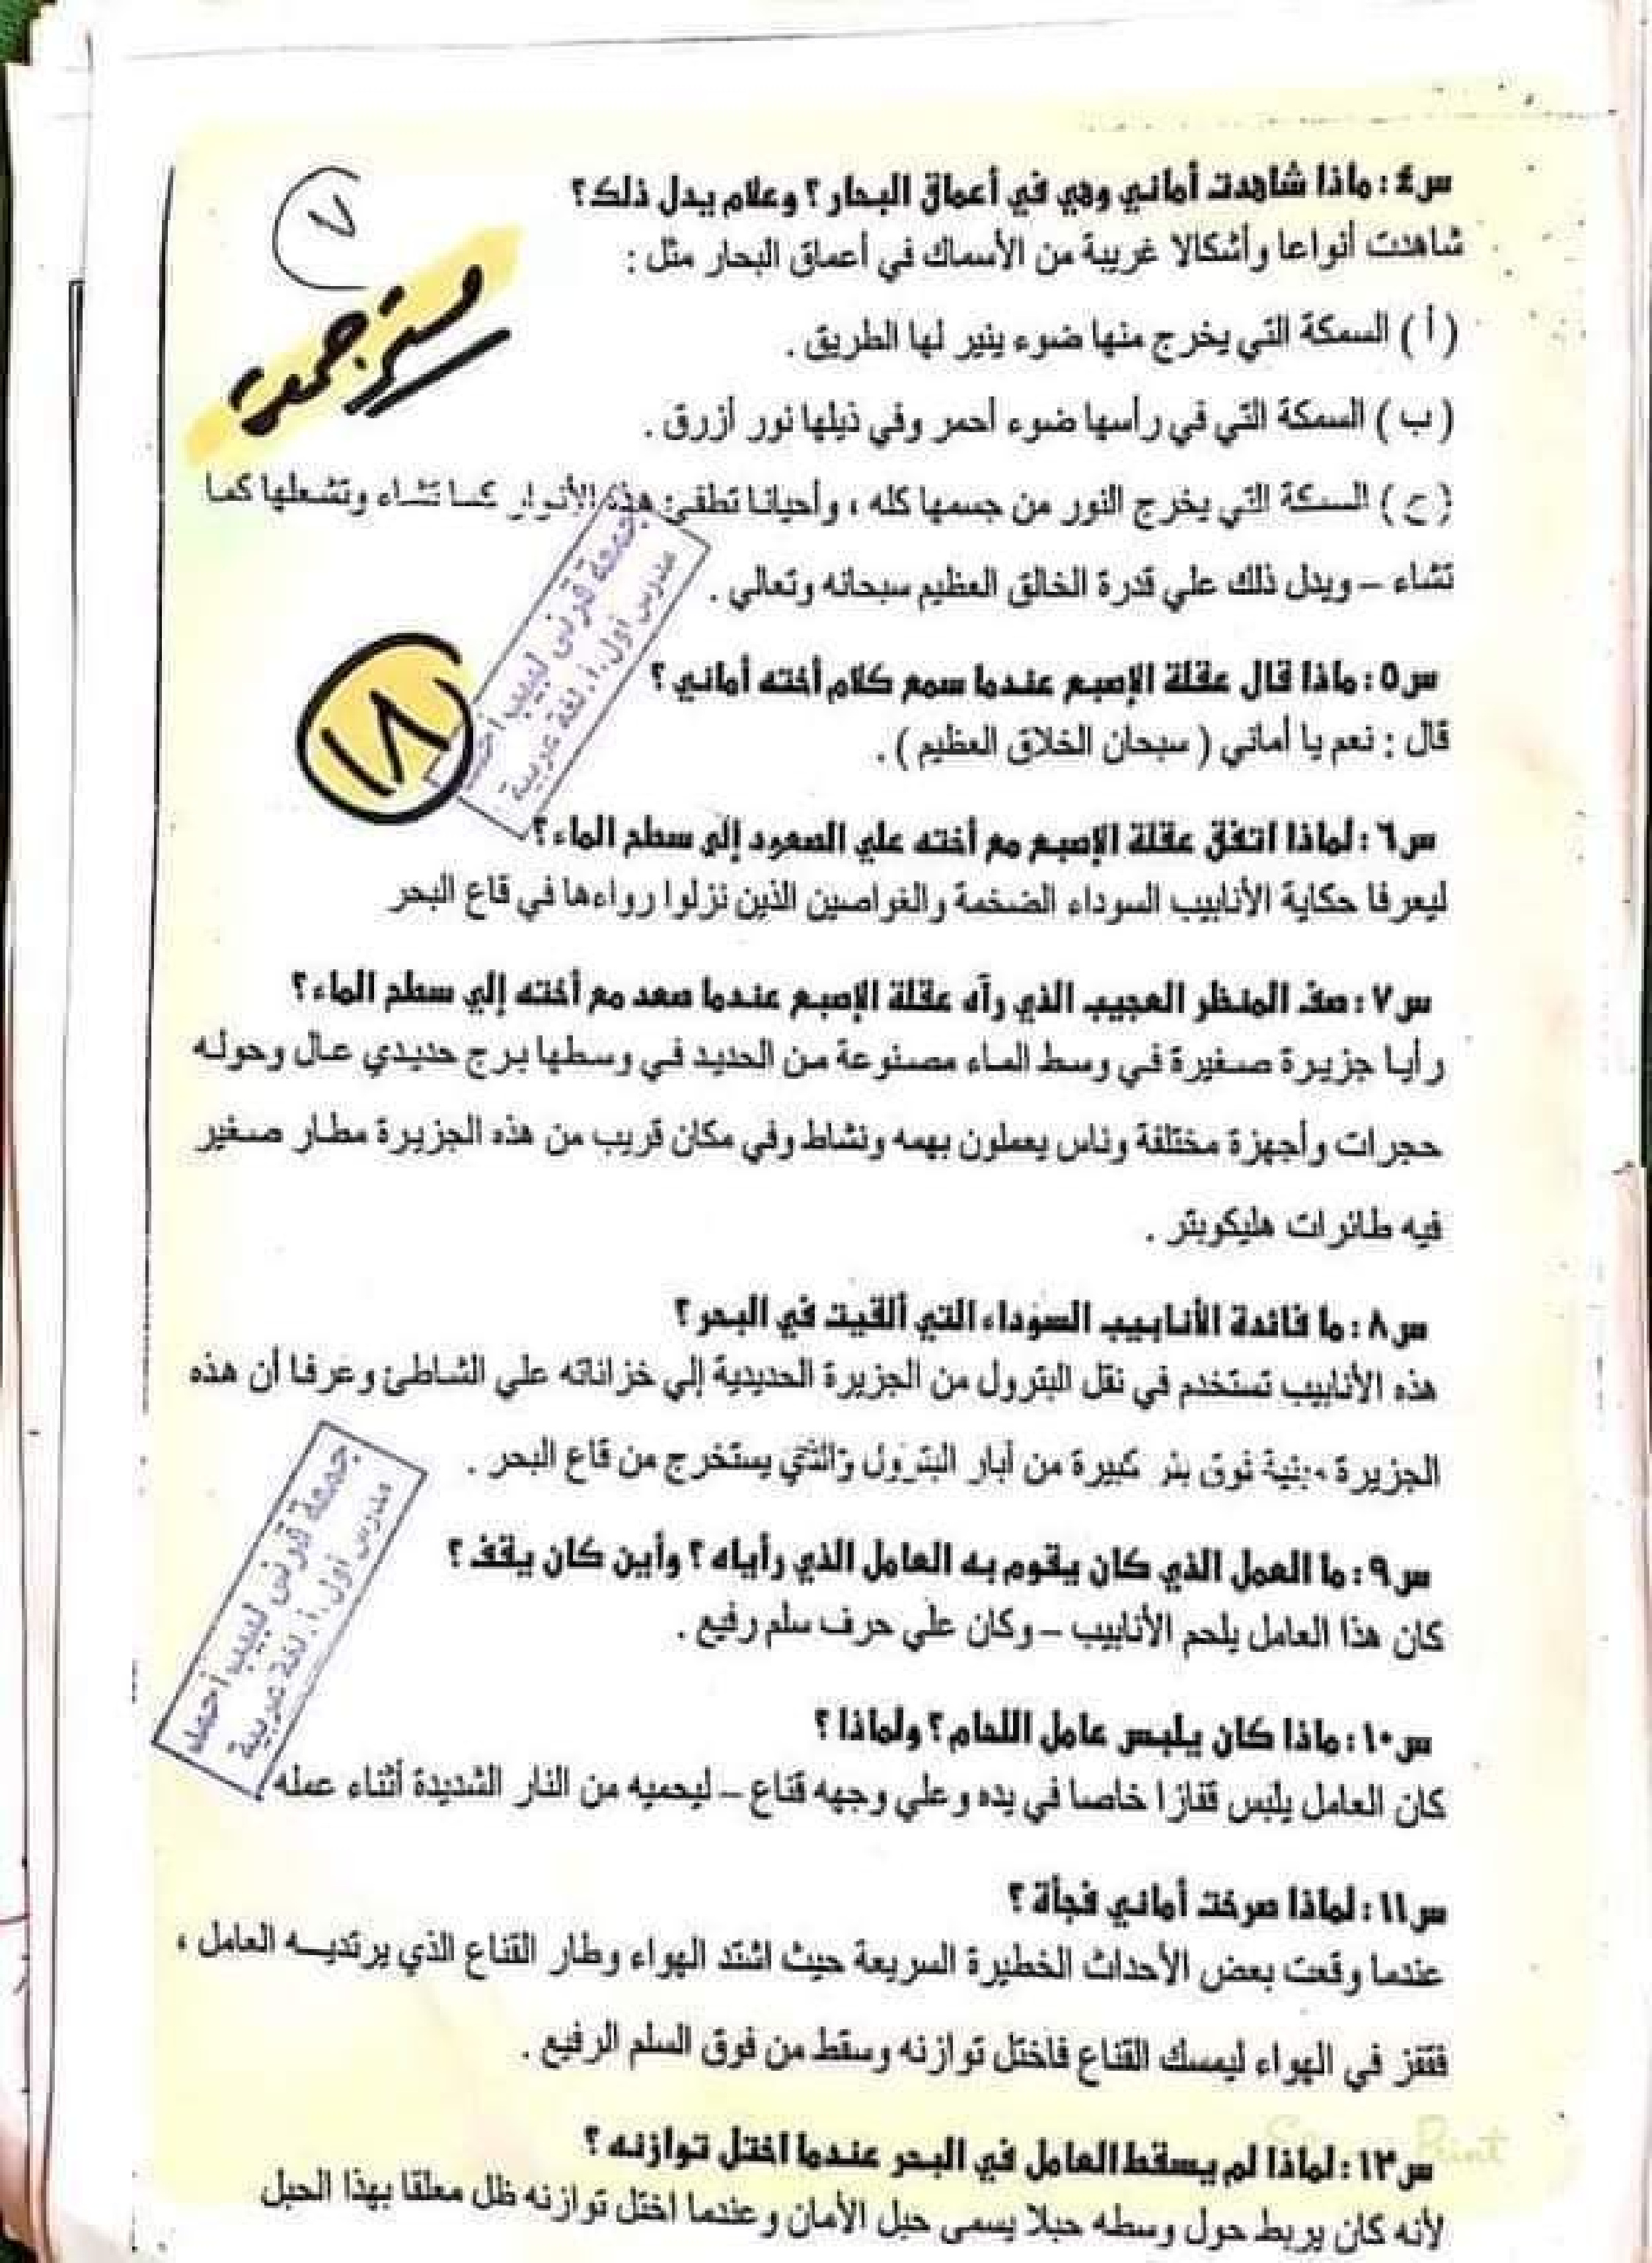 ٧
مستر جمعة
س٤: ماذا شاهدت أماني وهي في أعماق البحار؟ وعلام يدل ذلك؟
شاهدت أنواعا وأشكالا غريبة من الأسماك في أعماق البحار مثل :
( أ ) السمكة التي يخرج منها ضوء ينير لها الطريق .
( ب ) السمكة التي في رأسها ضوء أحمر وفي ذيلها نور أزرق .
( ح ) السمكة التي يخرج النور من جسمها كله ، وأحيانا تطفئ هذه الأنوار كما تشاء وتشعلها كما
تشاء – ويدل ذلك علي قدرة الخالق العظيم سبحانه وتعالي .
جمعة قرنى لبيب أحمد
مدرس أول أ. لغة عربية
١٨
س٥: ماذا قال عقلة الإصبع عندما سمع كلام أخته أماني؟
قال : نعم يا أماني ( سبحان الخلاق العظيم ) .
س٦: لماذا اتفق عقلة الإصبع مع أخته علي الصعود إلي سطح الماء؟
ليعرفا حكاية الأنابيب السوداء الضخمة والغواصين الذين نزلوا رواءها في قاع البحر
س٧: صف المنظر العجيب الذي رآه عقلة الإصبع عندما صعد مع أخته إلي سطح الماء؟
رأيا جزيرة صغيرة في وسط الماء مصنوعة من الحديد في وسطها برج حديدي عال وحوله
حجرات وأجهزة مختلفة وناس يعملون بهمه ونشاط وفي مكان قريب من هذه الجزيرة مطار صغير
فيه طائرات هليكوبتر .
س٨: ما فائدة الأنابيب السوداء التي ألقيت في البحر؟
هذه الأنابيب تستخدم في نقل البترول من الجزيرة الحديدية إلي خزاناته علي الشاطئ وعرفا أن هذه
الجزيرة مبنية فوق بئر كبيرة من أبار البترول والذي يستخرج من قاع البحر .
جمعة قرنى لبيب أحمد
مدرس أول أ. لغة عربية
س٩: ما العمل الذي كان يقوم به العامل الذي رأياه؟ وأين كان يقف؟
كان هذا العامل يلحم الأنابيب – وكان علي حرف سلم رفيع .
س١٠: ماذا كان يلبس عامل اللحام؟ ولماذا؟
كان العامل يلبس قفازا خاصا في يده وعلي وجهه قناع – ليحميه من النار الشديدة أثناء عمله
س١١: لماذا صرخت أماني فجأة؟
عندما وقعت بعض الأحداث الخطيرة السريعة حيث اشتد الهواء وطار القناع الذي يرتديه العامل ،
فقفز في الهواء ليمسك القناع فاختل توازنه وسقط من فوق السلم الرفيع .
س١٣: لماذا لم يسقط العامل في البحر عندما اختل توازنه؟
لأنه كان يربط حول وسطه حبلا يسمى حبل الأمان وعندما اختل توازنه ظل معلقا بهذا الحبل